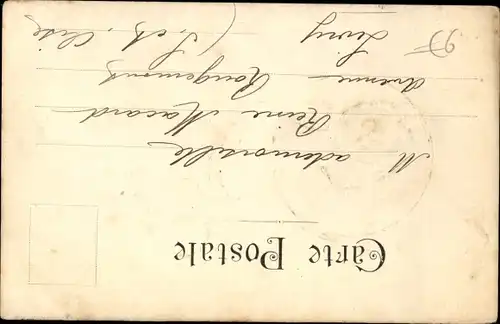 Carte Postale
Mademoiselle
Reine Macard
Avenue Rougemont
Livry
(S. et. Oise)
95